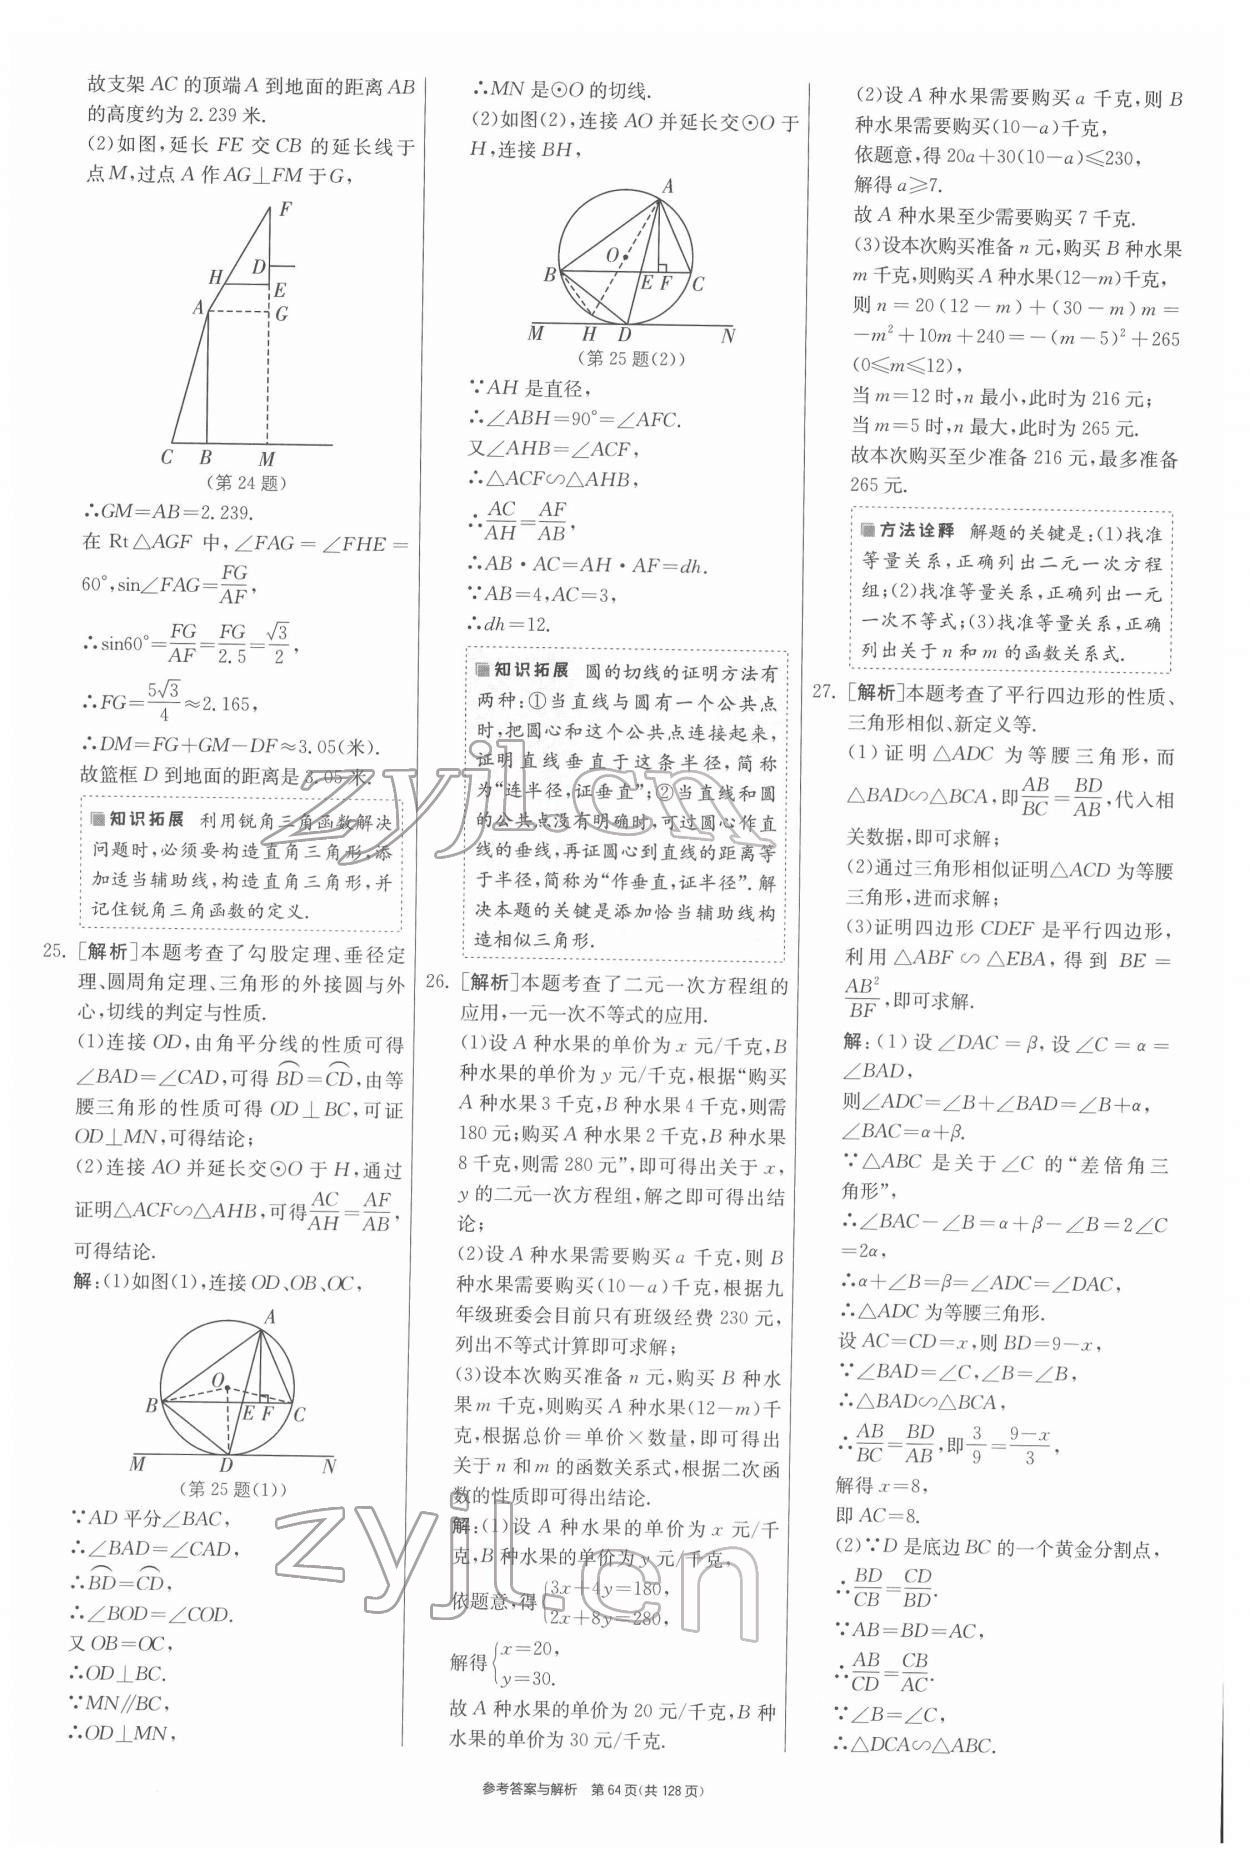 故支架 AC 的顶端 A 到地面的距离 AB
的高度约为 2.239 米.
(2)如图,延长 FE 交 CB 的延长线于
点 M,过点 A 作 AG⊥FM 于 G,
F
D
H
E
A
G
C B M
(第 24 题)
∴GM=AB=2.239.
在 Rt△AGF 中,∠FAG=∠FHE=
60°,sin∠FAG=FG/AF,
∴sin60°=FG/AF=FG/2.5=√3/2,
∴FG=5√3/4≈2.165,
∴DM=FG+GM-DF≈3.05(米).
故篮框 D 到地面的距离是 3.05 米.
知识拓展 利用锐角三角函数解决
问题时,必须要构造直角三角形,添
加适当辅助线,构造直角三角形,并
记住锐角三角函数的定义.
25. [解析]本题考查了勾股定理、垂径定
理、圆周角定理、三角形的外接圆与外
心,切线的判定与性质.
(1)连接 OD,由角平分线的性质可得
∠BAD=∠CAD,可得 B͡D=C͡D,由等
腰三角形的性质可得 OD⊥BC,可证
OD⊥MN,可得结论;
(2)连接 AO 并延长交⊙O 于 H,通过
证明△ACF∽△AHB,可得AC/AH=AF/AB,
可得结论.
解:(1)如图(1),连接 OD、OB、OC,
A
O
B E F C
M D N
(第 25 题(1))
∵AD 平分∠BAC,
∴∠BAD=∠CAD,
∴B͡D=C͡D,
∴∠BOD=∠COD.
又 OB=OC,
∴OD⊥BC.
∵MN∥BC,
∴OD⊥MN,
∴MN 是⊙O 的切线.
(2)如图(2),连接 AO 并延长交⊙O 于
H,连接 BH,
A
O
B E F C
M H D N
(第 25 题(2))
∵AH 是直径,
∴∠ABH=90°=∠AFC.
又∠AHB=∠ACF,
∴△ACF∽△AHB,
∴AC/AH=AF/AB,
∴AB·AC=AH·AF=dh.
∵AB=4,AC=3,
∴dh=12.
知识拓展 圆的切线的证明方法有
两种:①当直线与圆有一个公共点
时,把圆心和这个公共点连接起来,
证明直线垂直于这条半径,简称
为“连半径,证垂直”;②当直线和圆
的公共点没有明确时,可过圆心作直
线的垂线,再证圆心到直线的距离等
于半径,简称为“作垂直,证半径”.解
决本题的关键是添加恰当辅助线构
造相似三角形.
26. [解析]本题考查了二元一次方程组的
应用,一元一次不等式的应用.
(1)设 A 种水果的单价为 x 元/千克,B
种水果的单价为 y 元/千克,根据“购买
A 种水果 3 千克,B 种水果 4 千克,则需
180 元;购买 A 种水果 2 千克,B 种水果
8 千克,则需 280 元”,即可得出关于 x,
y 的二元一次方程组,解之即可得出结
论;
(2)设 A 种水果需要购买 a 千克,则 B
种水果需要购买(10-a)千克,根据九
年级班委会目前只有班级经费 230 元,
列出不等式计算即可求解;
(3)设本次购买准备 n 元,购买 B 种水
果 m 千克,则购买 A 种水果(12-m)千
克,根据总价=单价×数量,即可得出
关于 n 和 m 的函数关系式,根据二次函
数的性质即可得出结论.
解:(1)设 A 种水果的单价为 x 元/千
克,B 种水果的单价为 y 元/千克,
依题意,得{3x+4y=180,
2x+8y=280,
解得{x=20,
y=30.
故 A 种水果的单价为 20 元/千克,B 种
水果的单价为 30 元/千克.
(2)设 A 种水果需要购买 a 千克,则 B
种水果需要购买(10-a)千克,
依题意,得 20a+30(10-a)≤230,
解得 a≥7.
故 A 种水果至少需要购买 7 千克.
(3)设本次购买准备 n 元,购买 B 种水果
m 千克,则购买 A 种水果(12-m)千克,
则 n=20(12-m)+(30-m)m=
-m²+10m+240=-(m-5)²+265
(0≤m≤12),
当 m=12 时,n 最小,此时为 216 元;
当 m=5 时,n 最大,此时为 265 元.
故本次购买至少准备 216 元,最多准备
265 元.
方法诠释 解题的关键是:(1)找准
等量关系,正确列出二元一次方程
组;(2)找准等量关系,正确列出一元
一次不等式;(3)找准等量关系,正确
列出关于 n 和 m 的函数关系式.
27. [解析]本题考查了平行四边形的性质、
三角形相似、新定义等.
(1)证明△ADC 为等腰三角形,而
△BAD∽△BCA,即AB/BC=BD/AB,代入相
关数据,即可求解;
(2)通过三角形相似证明△ACD 为等腰
三角形,进而求解;
(3)证明四边形 CDEF 是平行四边形,
利用△ABF∽△EBA,得到 BE=
AB²/BF,即可求解.
解:(1)设∠DAC=β,设∠C=α=
∠BAD,
则∠ADC=∠B+∠BAD=∠B+α,
∠BAC=α+β.
∵△ABC 是关于∠C 的“差倍角三
角形”,
∴∠BAC-∠B=α+β-∠B=2∠C
=2α,
∴α+∠B=β=∠ADC=∠DAC,
∴△ADC 为等腰三角形.
设 AC=CD=x,则 BD=9-x,
∵∠BAD=∠C,∠B=∠B,
∴△BAD∽△BCA,
∴AB/BC=BD/AB,即3/9=(9-x)/3,
解得 x=8,
即 AC=8.
(2)∵D 是底边 BC 的一个黄金分割点,
∴BD/CB=CD/BD.
∵AB=BD=AC,
∴AB/CD=CB/AC.
∵∠B=∠C,
∴△DCA∽△ABC.
参考答案与解析 第 64 页(共 128 页)
zyjl.cn
zyjl.cn